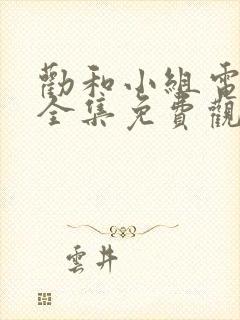 勸和小組電
全集免費觀
雲井